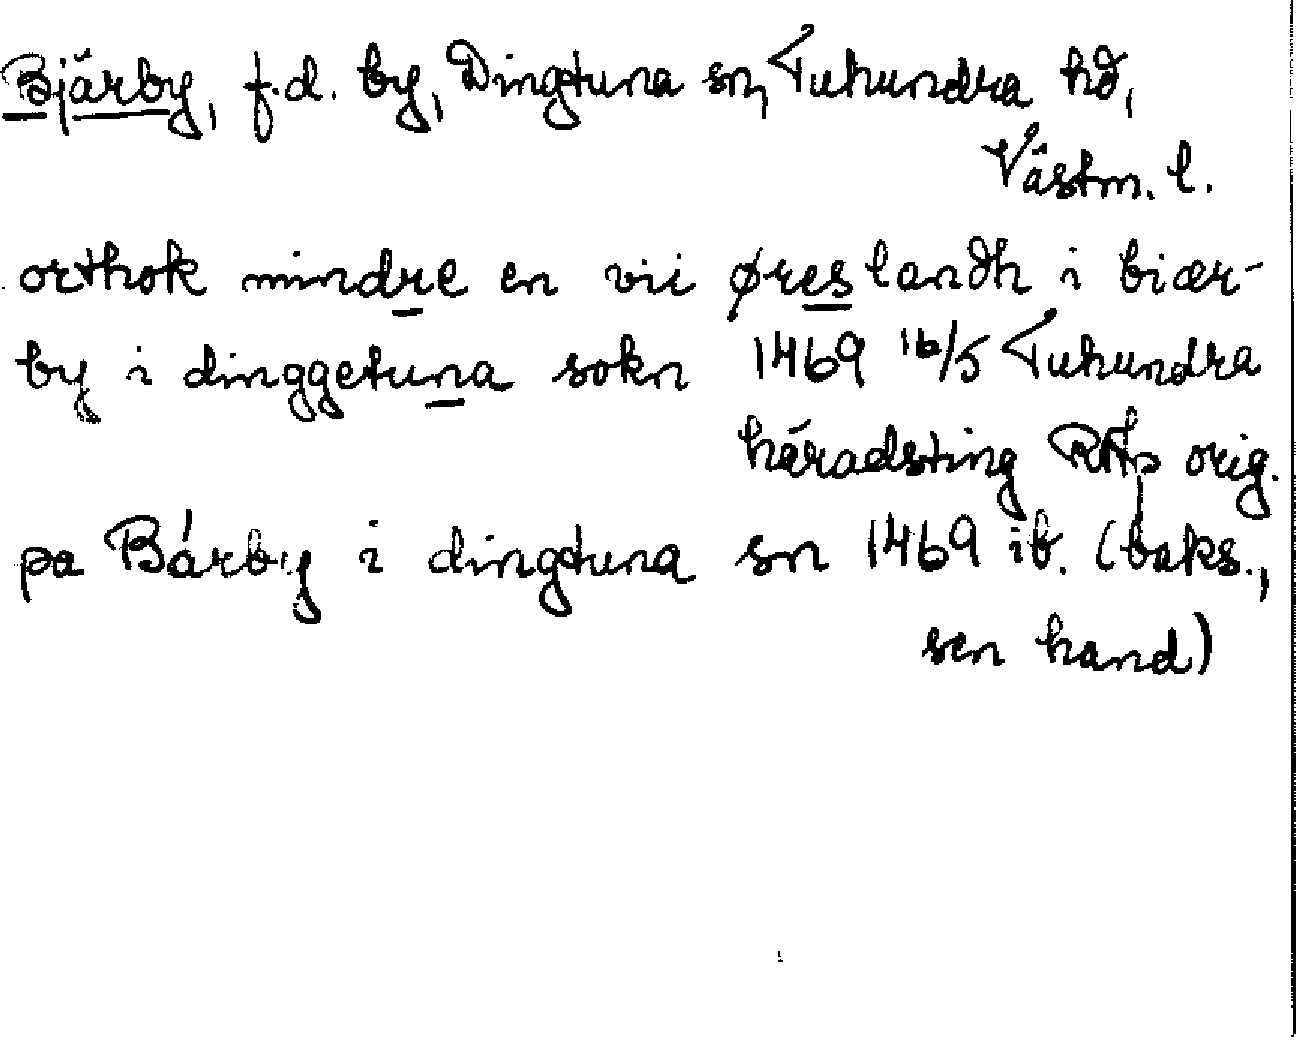 Bjärby, f.d. by, Dingtuna sn, Tuhundra hd,
Västm. l.
orthok mindre en vii øres landh i biær-
by i dinggetuna sokn 1469 16/5 Tuhundra
häradsting RAp orig.
pa Bárby i dingtuna sn 1469 ib. (baks.,
sen hand)